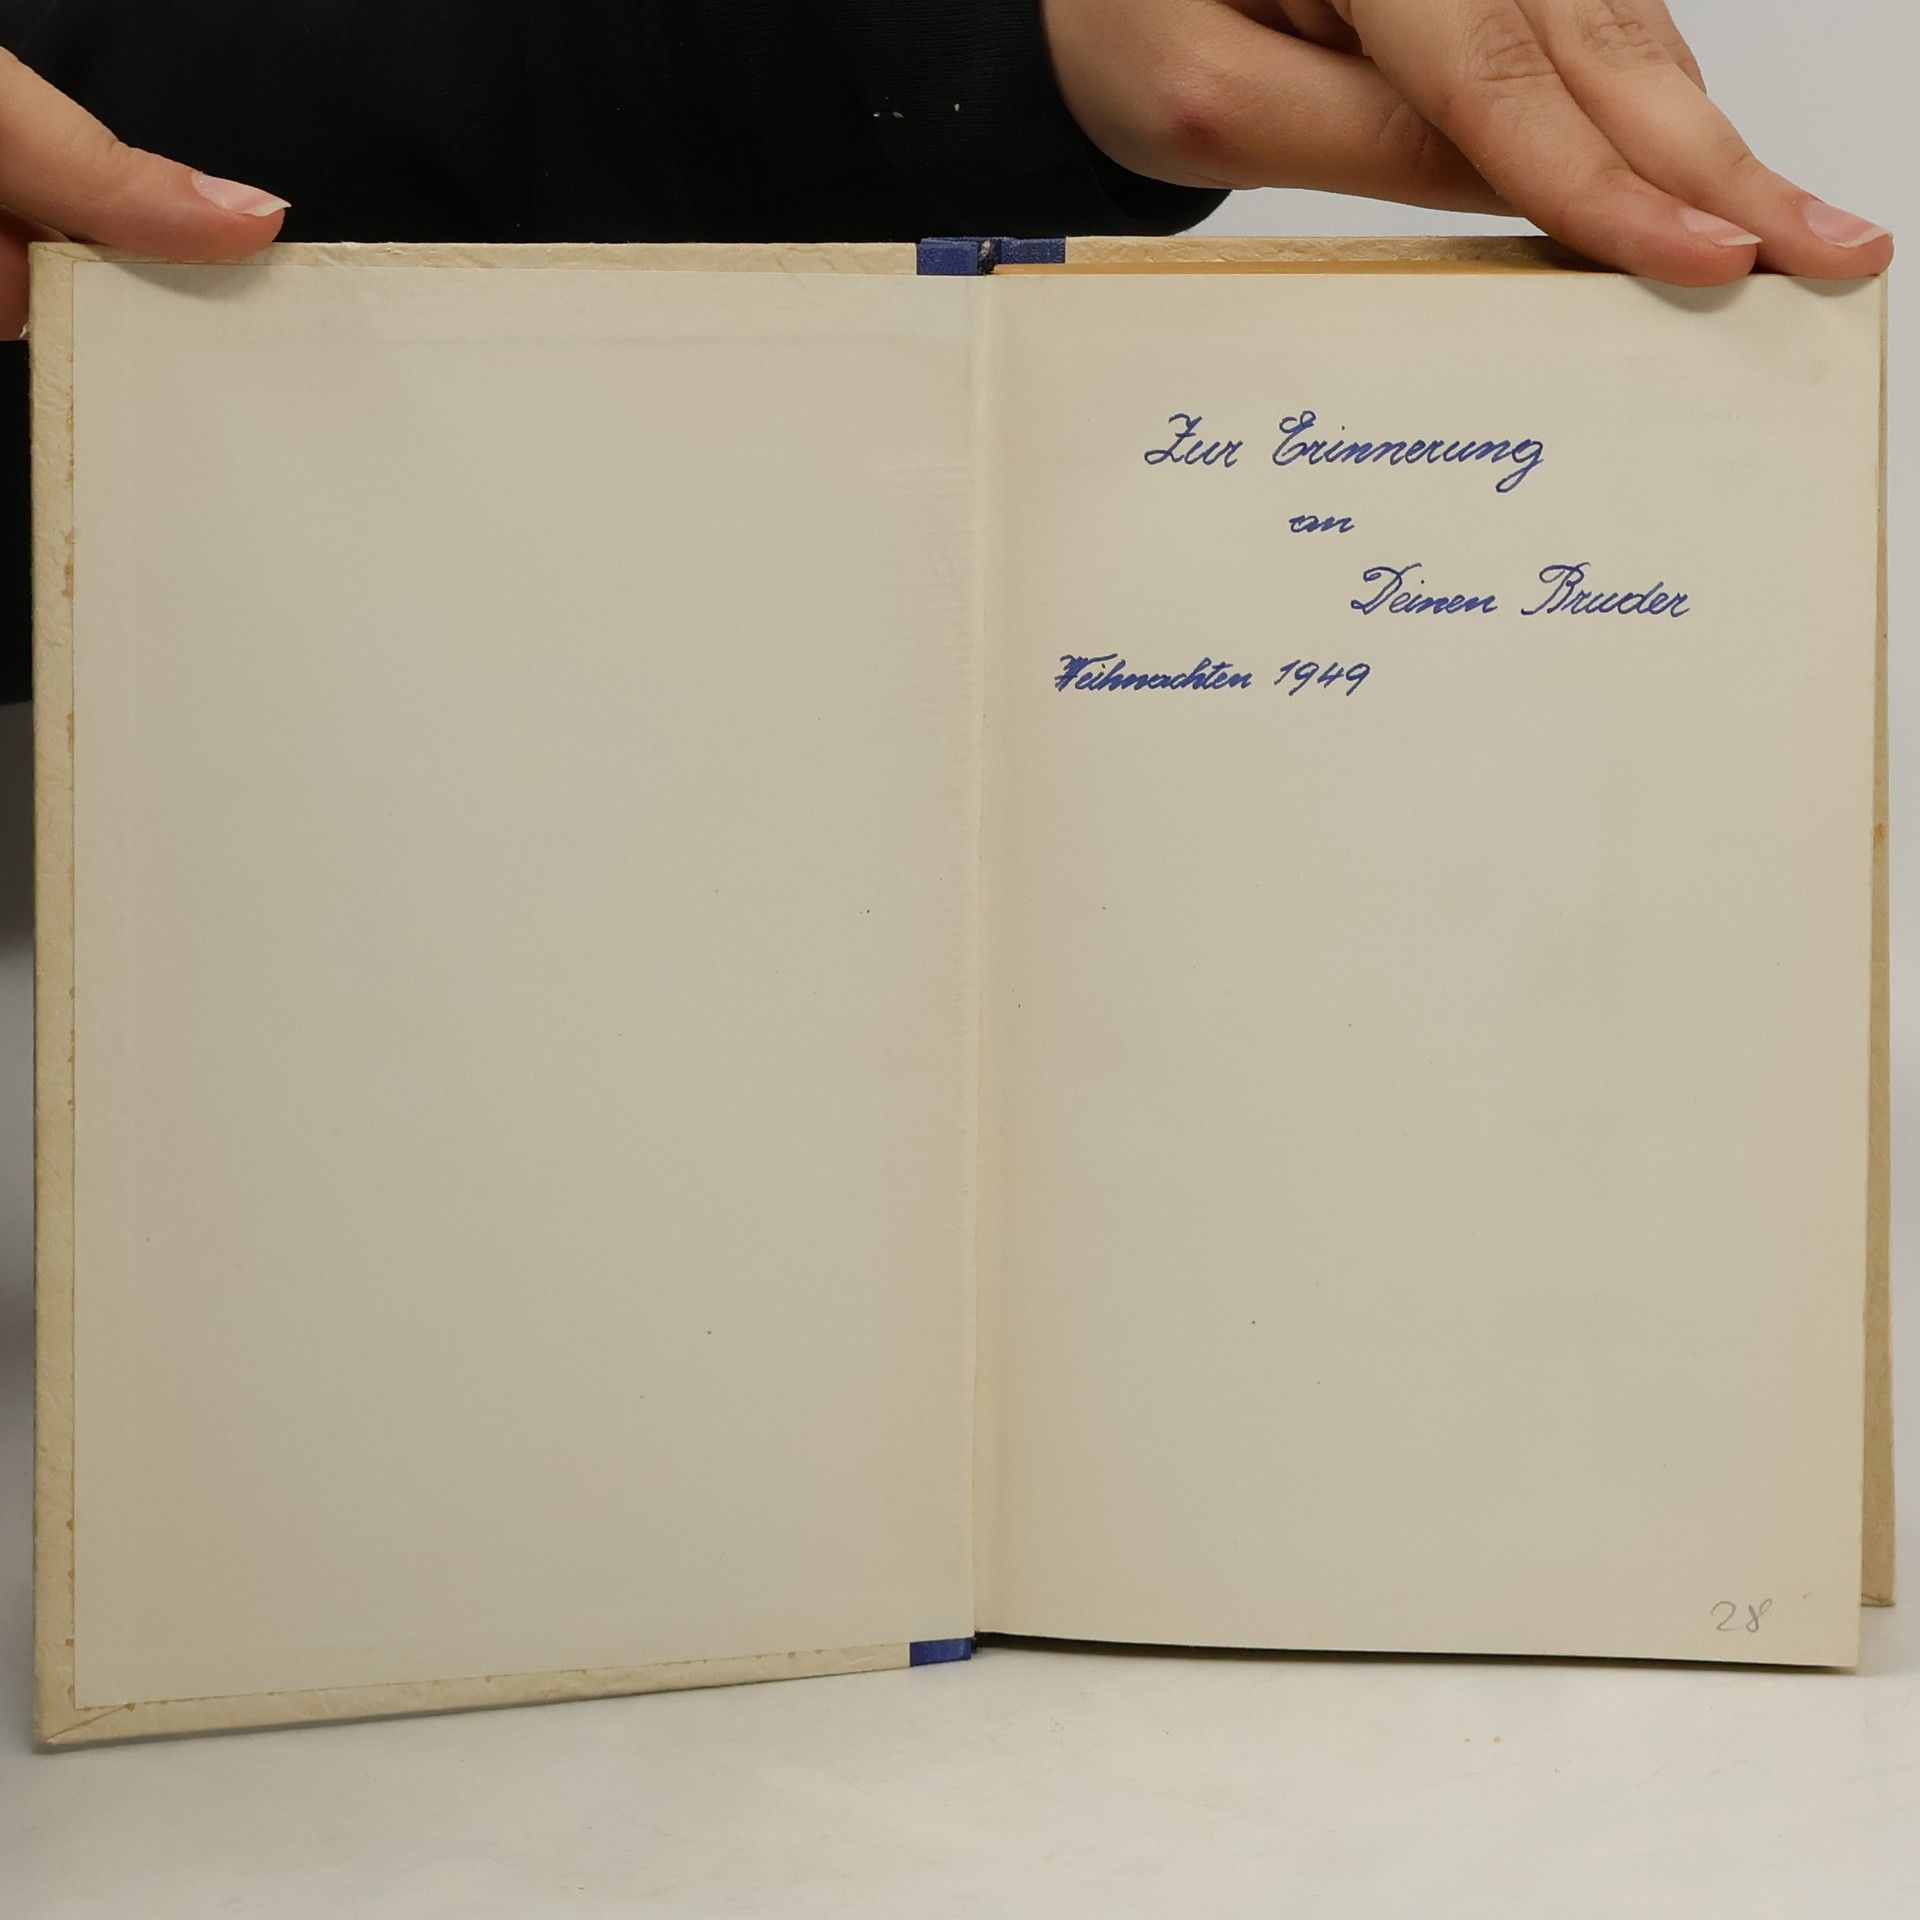 Zur Erinnerung
an
Deinen Bruder
Weihnachten 1949
28